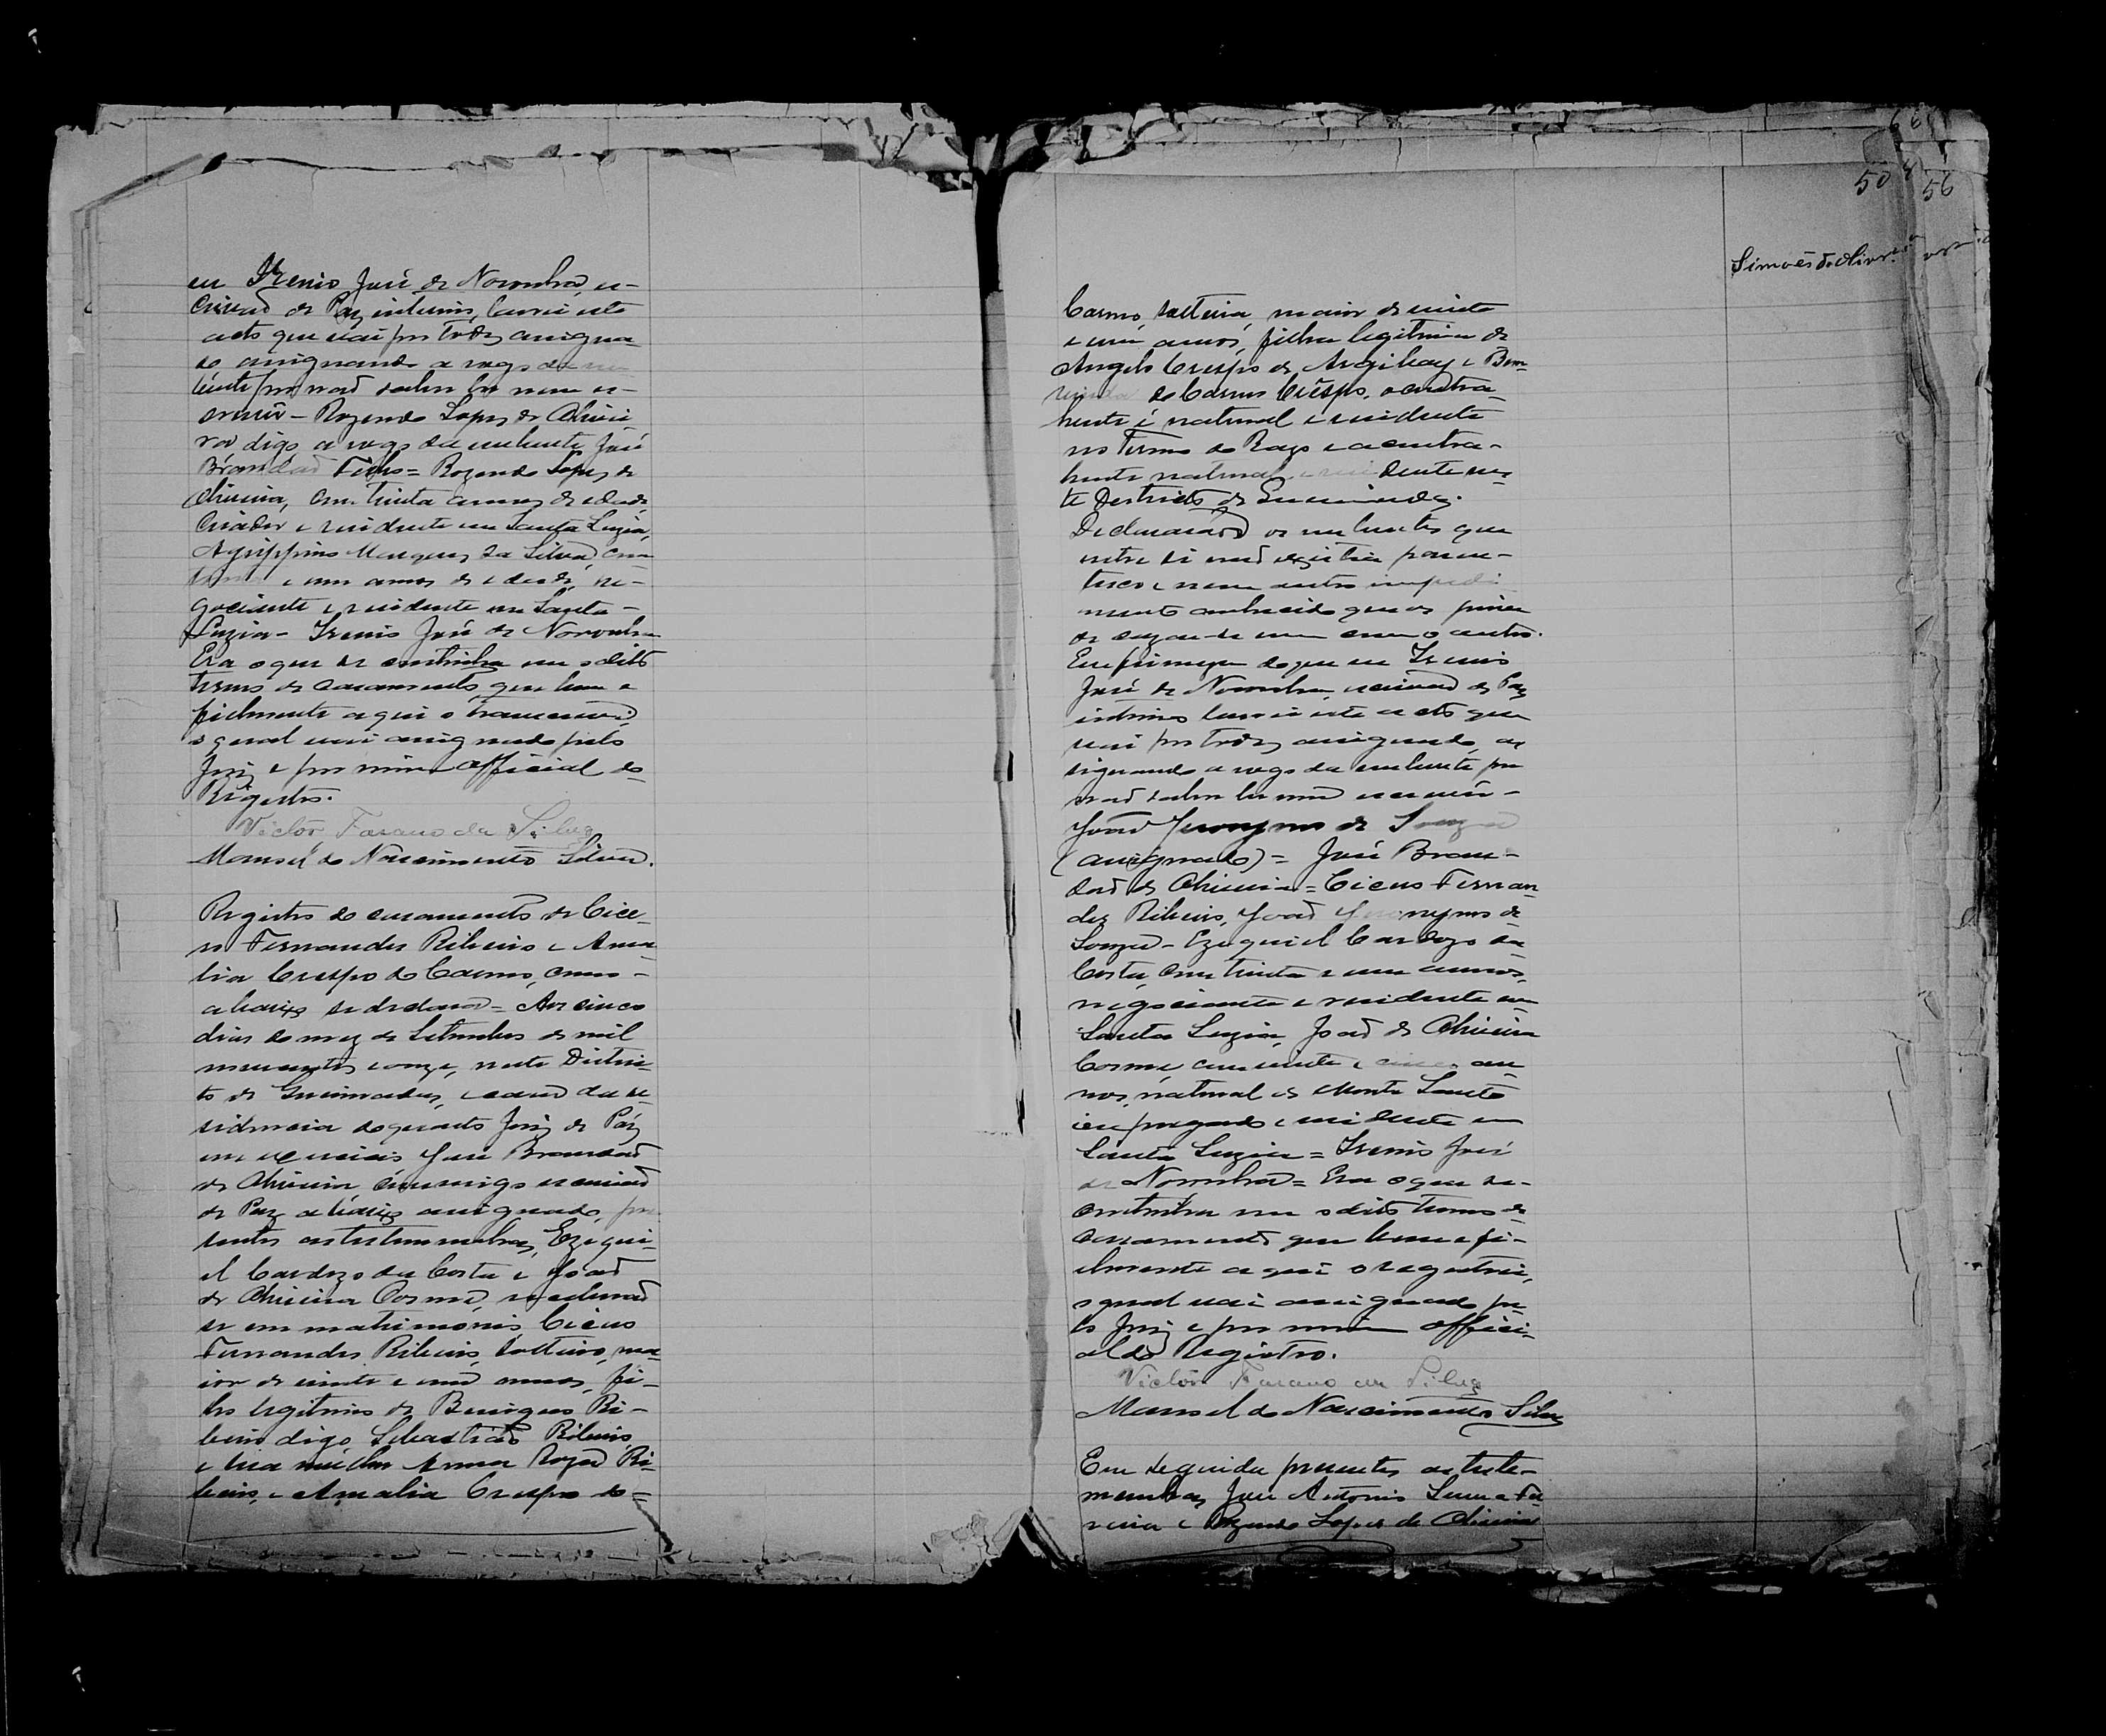 eu Irenio José de Noronha, es-
crivão de Paz interino, lavrei este
acto que vai por todos assigna-
do assignando a rogo da nu
bente por não saber ler nem es-
crever - Rozendo Lopes de Olivei-
ra, digo, a rogo da nubente José
Brandão Filho = Rozendo Lopes de
Oliveira, com trinta annos de edade,
Criador e residente em Santa Luzia,
Agrippino Marques da Silva, com
e um annos de edade, ne-
gociante e residente em Santa -
Luzia - Irenio José de Noronha
Era o que se continha em o dito
termo de casamento, que bem e
fielmente aqui o transcrevi,
o qual vai assignado pelo
Juiz e por mim Official do
Registro.
Victor Farano da Silva
Manoel do Nascimento Silva.
Registro do casamento de Cice-
ro Fernandes Ribeiro e Ama-
lia Crespo do Carmo, como -
abaixo se declara = Aos cinco
dias do mez de Setembro de mil
novecentos e onze, neste Distric-
to de Guimadas, e casa da re-
sidencia do quarto Juiz de Páz
em exercicio José Brandão
de Oliveira commigo escrivão
de Paz abaixo assignado, pre
sentes as testemunhas, Ezequi-
el Cardozo da Costa e João
de Oliveira Cosme, receberão
se em matrimonio, Cicero
Fernandes Ribeiro, solteiro, ma-
ior de vinte e um annos, fi-
lho legitimo de Ribeiro
digo, Sebastião Ribeiro,
e sua mulher Anna Roza Ri-
beiro, e Amalia Crespo do =
50
56
Simões de Olivrª
Carmo, solteira, maior de vinte
e um annos, filha legitima de
Angelo Crespo de Argibay e Bem-
vinda do Carmo Crespo, o contra-
hente é natural e residente
no Termo do Razo e a contra-
hente natural e residente nes-
te Destricto de
Declararão os nubentes que
entre si não existia paren-
tesco e nem outro impedi
mento conhecido que os prive
de cazar-se um com o outro.
Em firmeza do que eu Irenio
José de Noronha, escrivão de Paz
interino lavrei este acto que
vai por todos assignado, as
signando a rogo da nubente por
não saber ler nem escrever -
João Jeronymo de Souza
(assignado) = José Bran-
dão de Oliveira = Cicero Fernan
des Ribeiro, João Jeronymo de
Souza - Ezequiel Cardozo da
Costa, com trinta e um annos,
negociante e residente em
Santa Luzia, João de Oliveira
Cosme, com vinte e cinco an
nos, natural de Monte Santo
empregado e residente em
Santa Luzia = Irenio José
de Noronha = Era o que se -
continha em o dito termo de
casamento que bem e fi-
elmente aqui o registrei,
o qual vai assignado pe
lo Juiz e por mim offici-
al do Registro.
Victor Farano da Silva
Manoel do Nascimento Silva
Em seguida presentes as teste-
munhas José Antonio Fer
reira e Rozendo Lopes de Oliveira